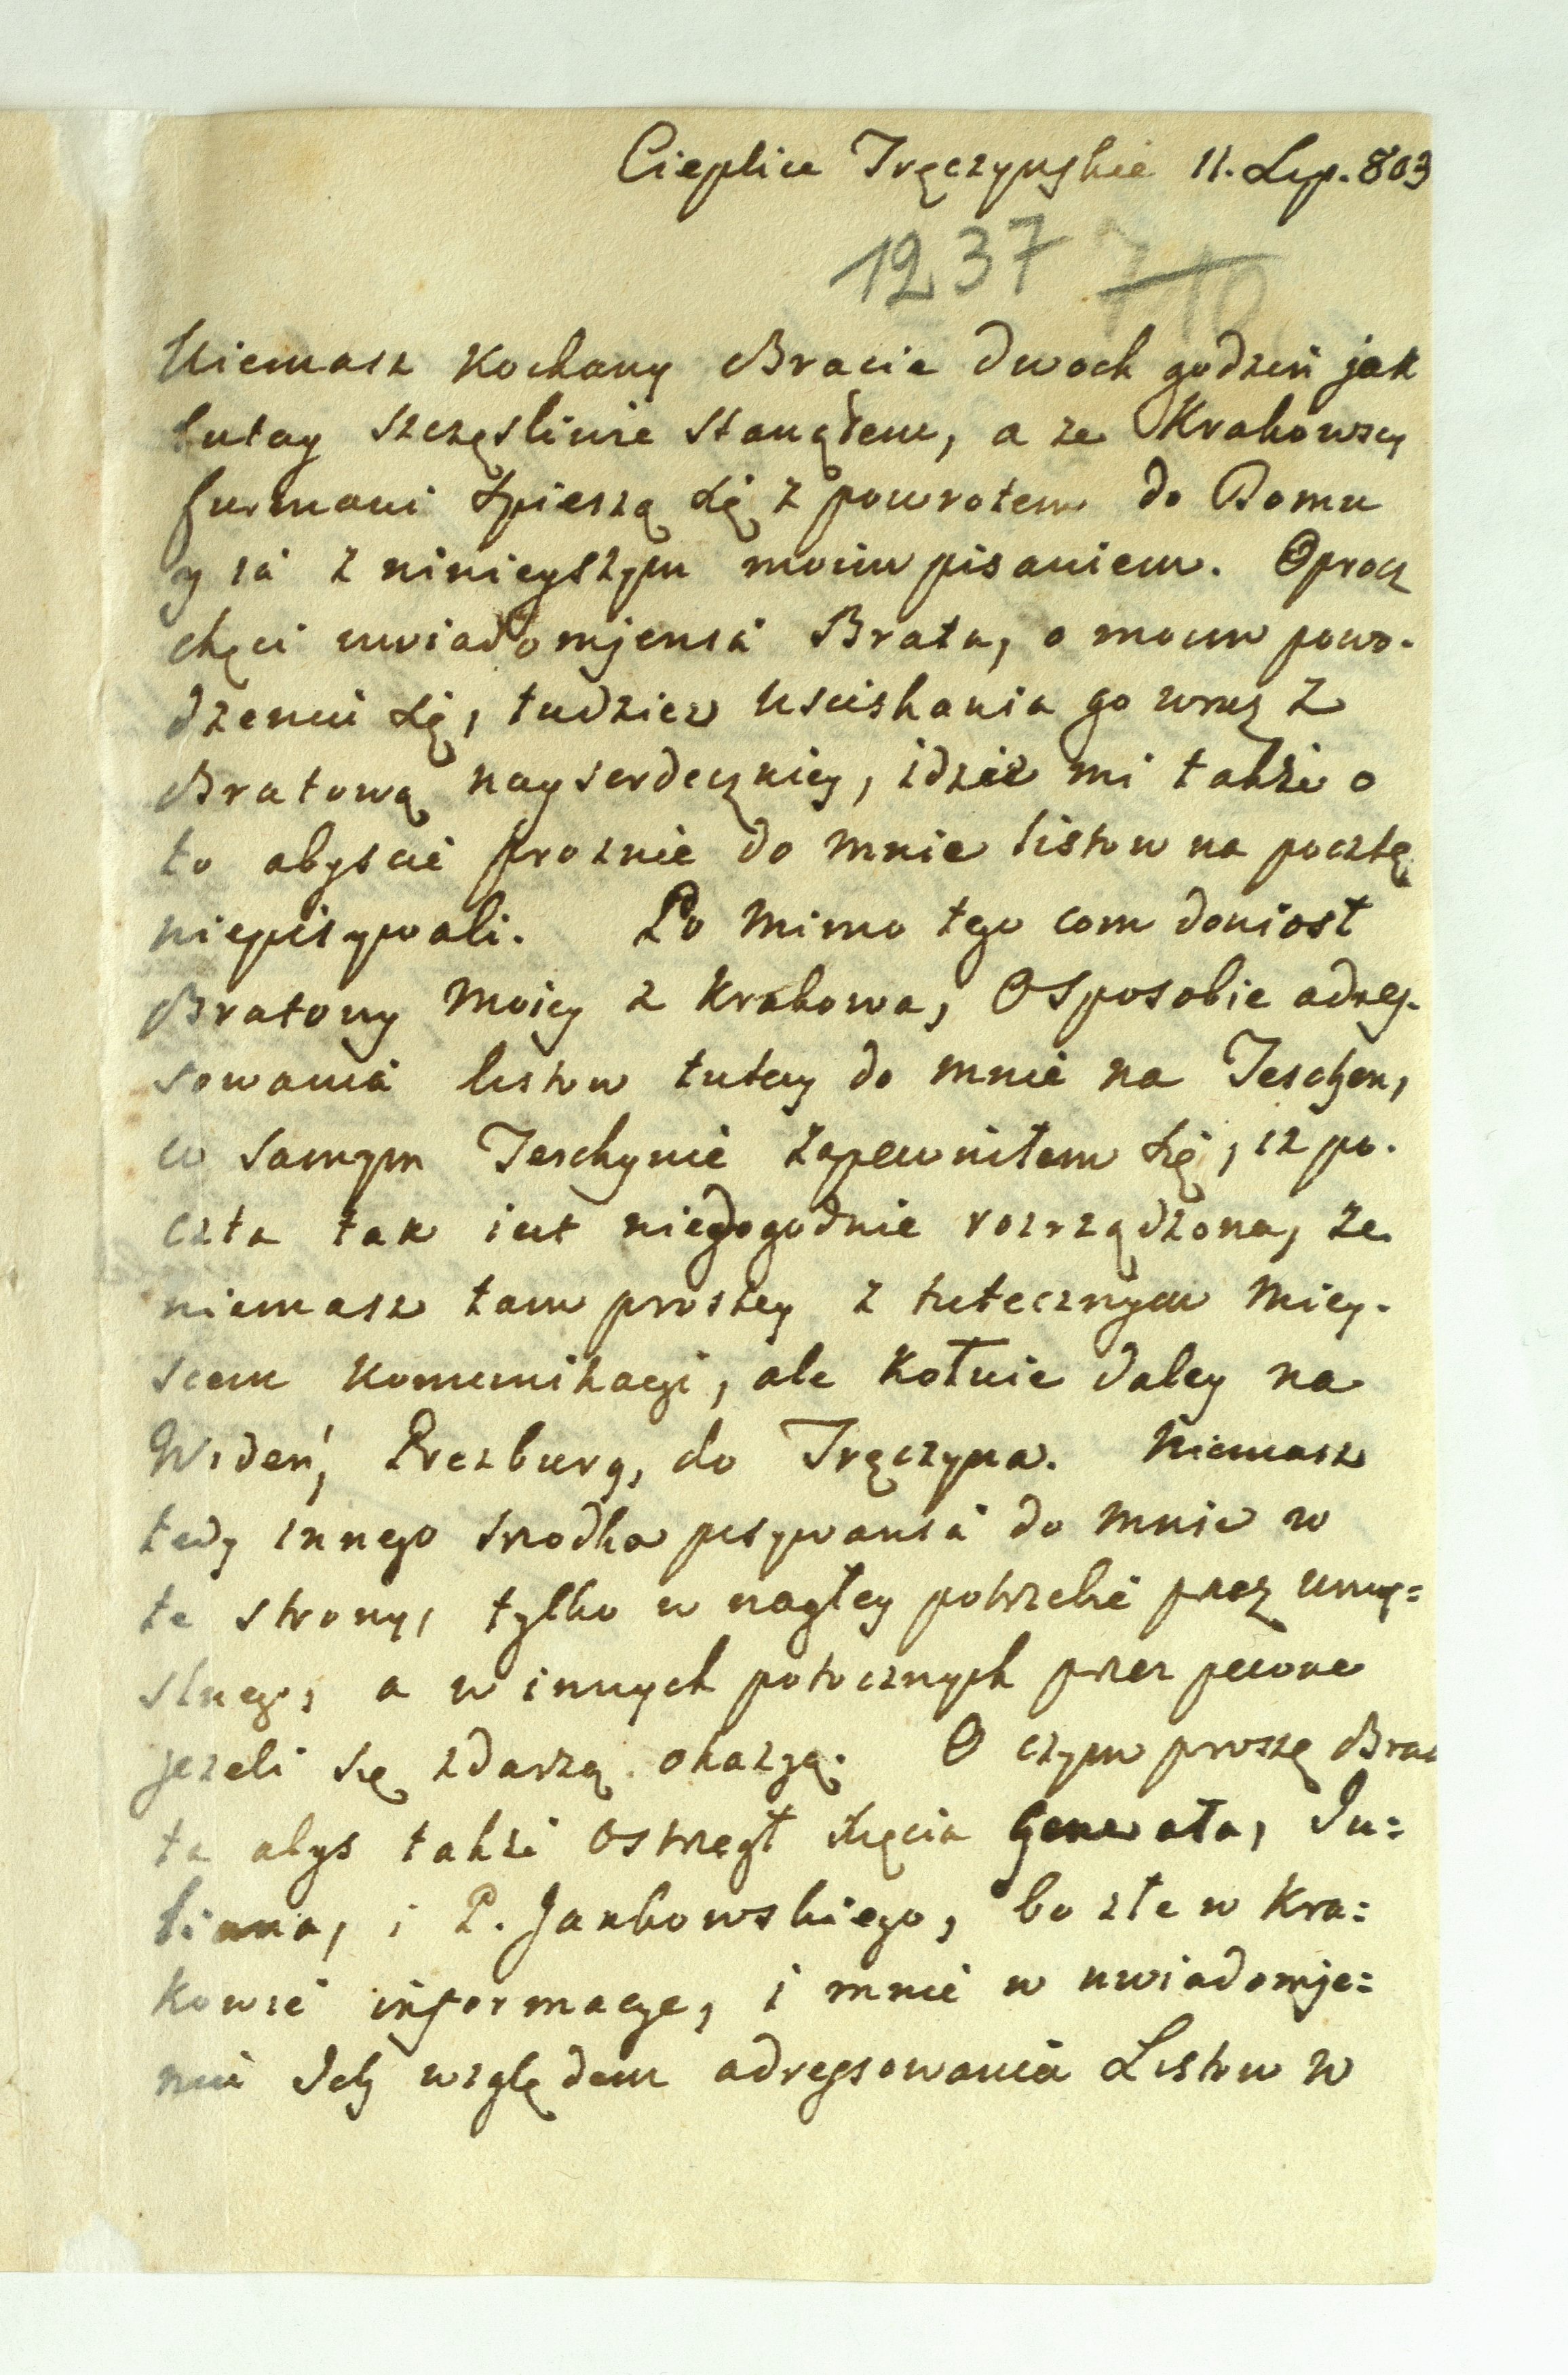 Cieplice Tręczyńskie 11. Lip. 803
1237 710
Niemasz Kochany Bracie dwoch godzin jak
tutay szczęsliwie stanąłem, a ze Krakowscy
furmani spieszą się z powrotem do Domu
y ia z ninieyszym moim pisaniem. Oprocz
chęci uwiadomjenia Brata, o moim powo-
dzeniu się, tudziez usciskania go wraz z
Bratową nayserdeczniey, idzie mi także o
to abyscie proznie do mnie listow na pocztę
niepisywali. Po mimo tego com doniosł
Bratowy moiey z Krakowa, O sposobie adres-
sowania listow tutay do mnie na Teschen,
w samym Teschynie zapewniłem się, iz po-
czta tak iest niedogodnie rozrządzona, ze
niemasz tam prostey z tutecznym miey-
scem komunikacyi, ale kołuie daley na
Wideń, Prezburg, do Tręczyna. Niemasz
tedy innego srodka pisywania do mnie w
te strony, tylko w nagłey potrzebie przez umy=
slnego, a w innych potocznych przez pewne
jezeli się zdarzą okazye. O czym proszę Bra
ta abys także ostrzegł Xięcia Generała, Ju=
liana, i P. Jankowskiego, bo złe w Kra=
kowie informacye, i mnie w uwiadomje=
niu Ich względem adressowania Listow w